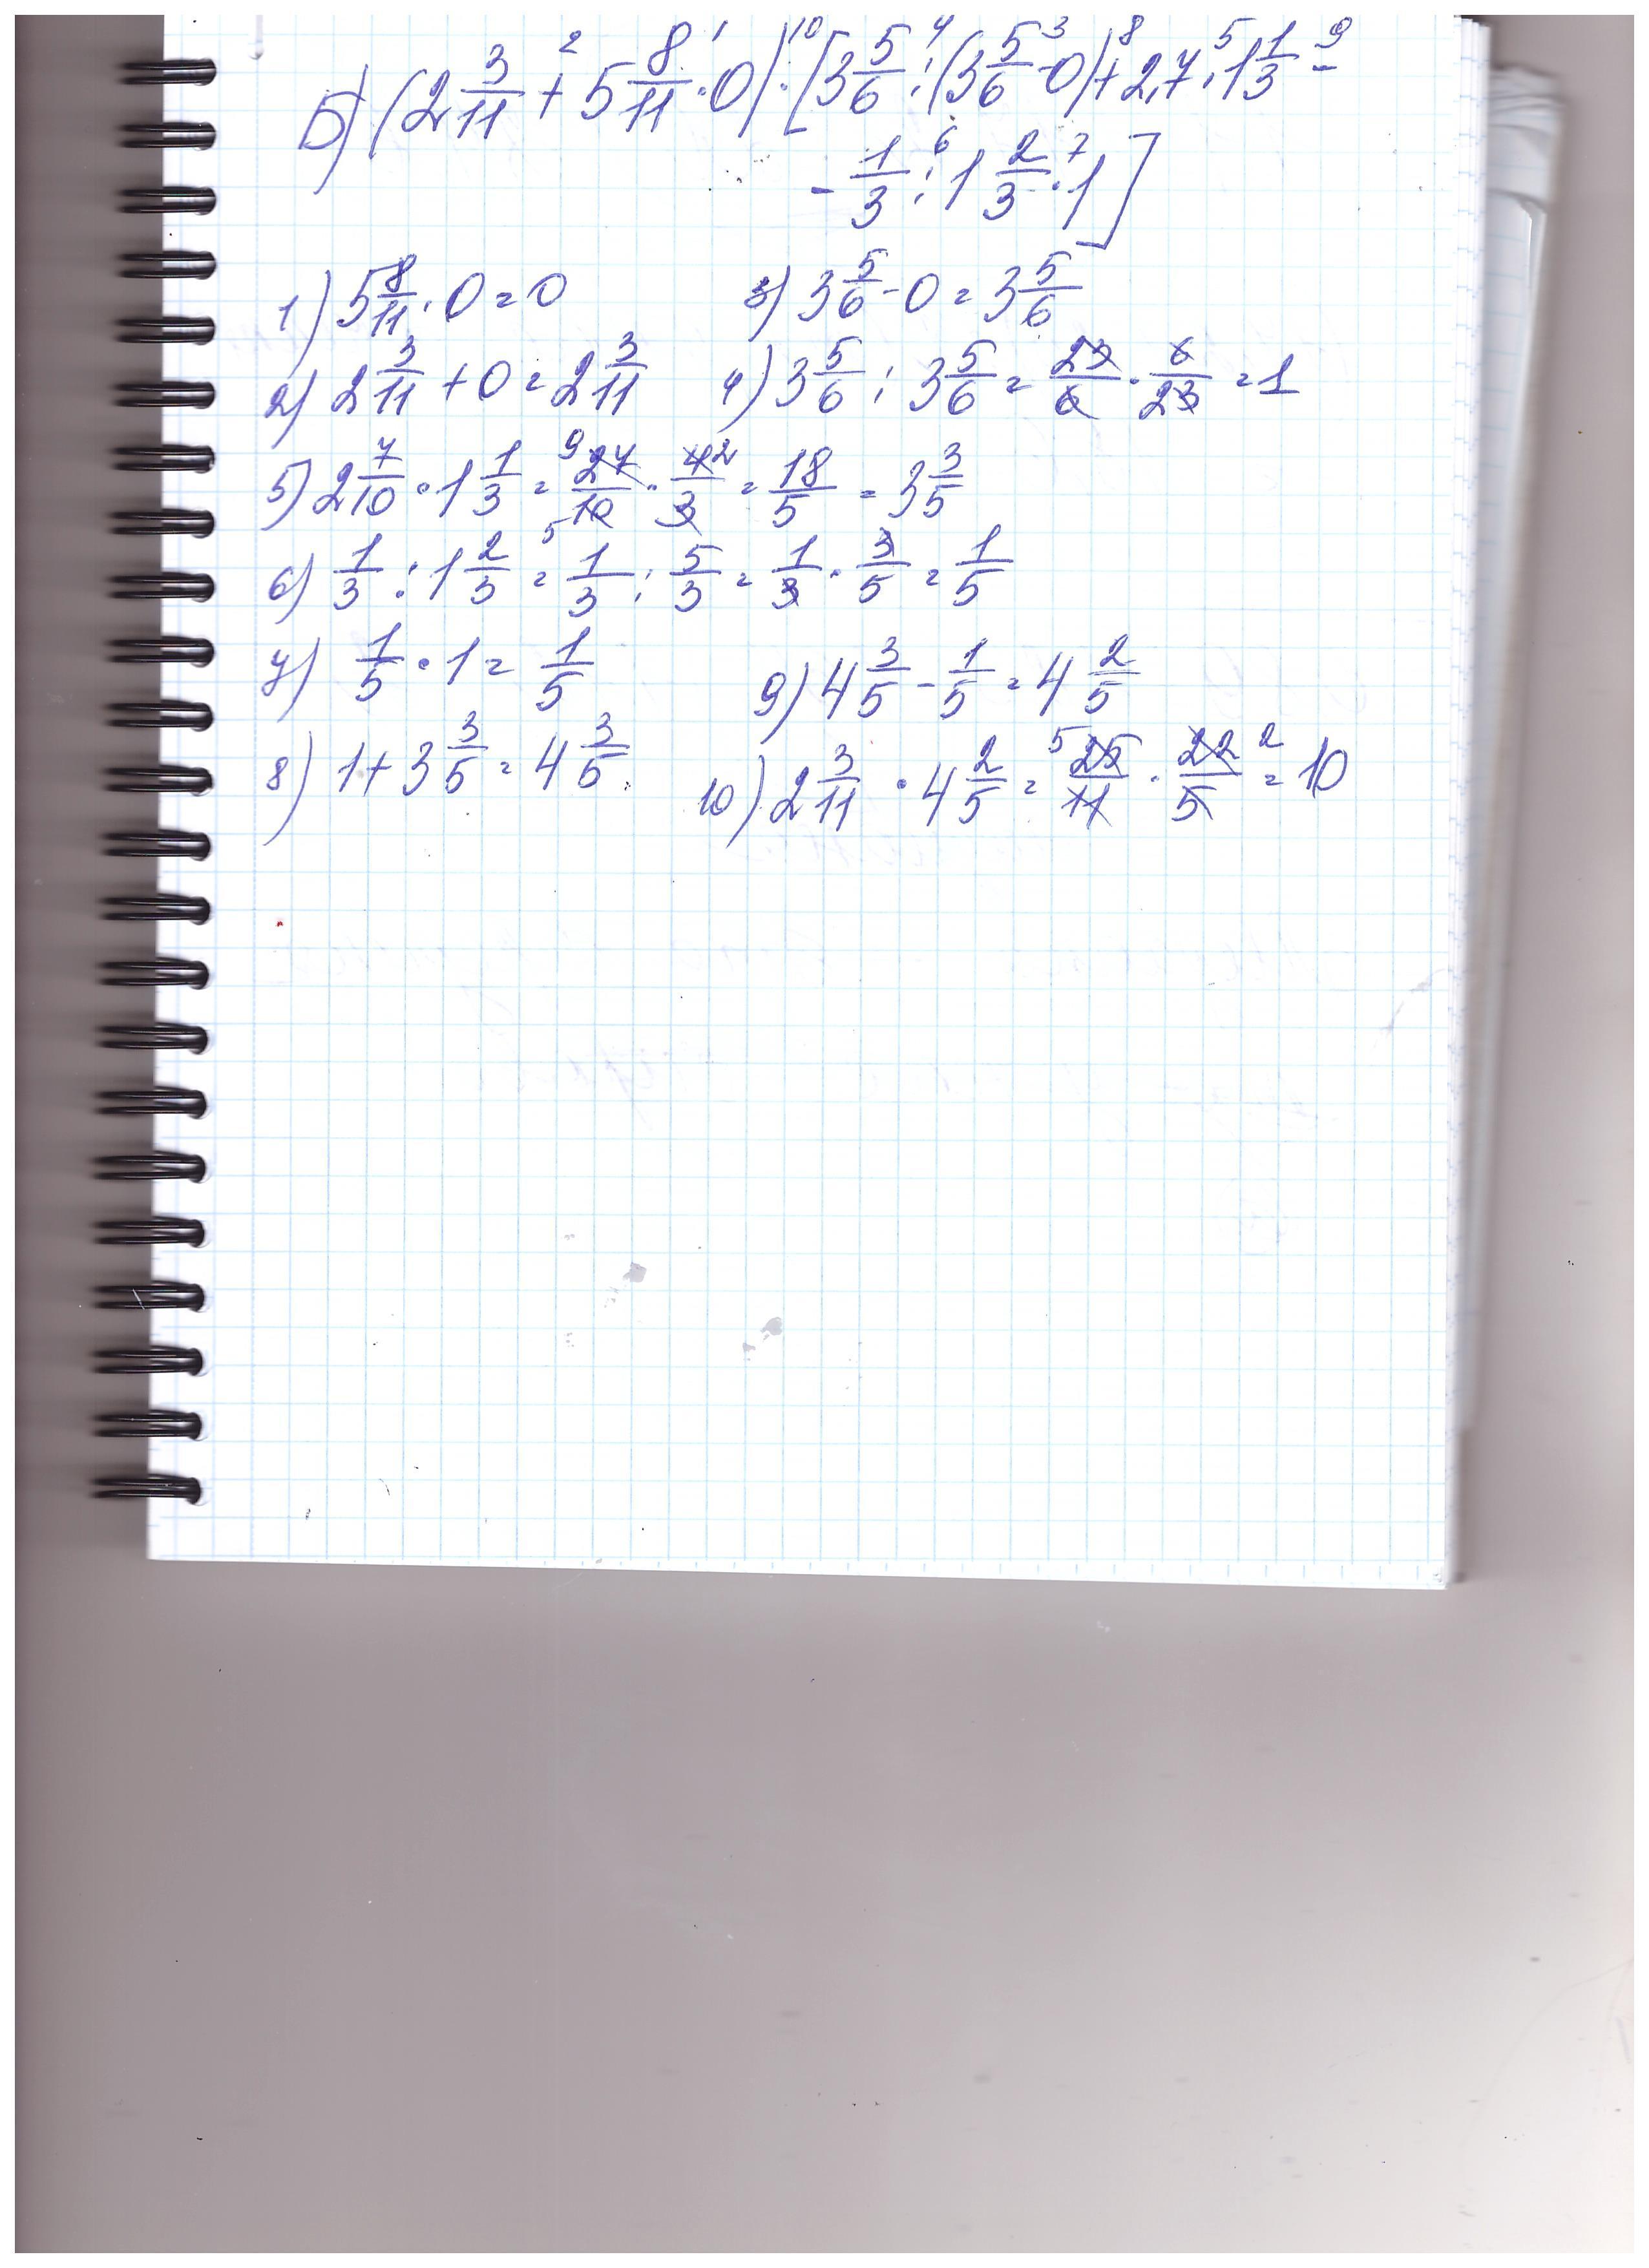 Б) (2 3/11 + 5 8/11 · 0) · [3 5/6 : (3 5/6 - 0) + 2,7 · 1 1/3 -
- 1/3 : 1 2/3 · 1]
1) 5 8/11 · 0 = 0 3) 3 5/6 - 0 = 3 5/6
2) 2 3/11 + 0 = 2 3/11 4) 3 5/6 : 3 5/6 = 23/6 · 6/23 = 1
5) 2 7/10 · 1 1/3 = 27/10 · 4/3 = 18/5 = 3 3/5
6) 1/3 : 1 2/3 = 1/3 : 5/3 = 1/3 · 3/5 = 1/5
7) 1/5 · 1 = 1/5 9) 4 3/5 - 1/5 = 4 2/5
8) 1 + 3 3/5 = 4 3/5 10) 2 3/11 · 4 2/5 = 25/11 · 22/5 = 10